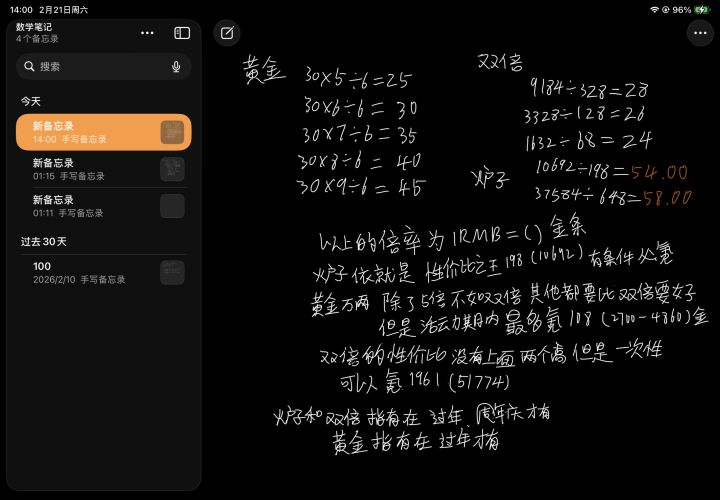 14:00 2月21日周六
96%
数学笔记
4个备忘录
搜索
今天
新备忘录
14:00 手写备忘录
新备忘录
01:15 手写备忘录
新备忘录
01:11 手写备忘录
过去30天
100
2026/2/10 手写备忘录
黄金
30×5÷6=25
30×6÷6=30
30×7÷6=35
30×8÷6=40
30×9÷6=45
双倍
9184÷328=28
3328÷128=26
1632÷68=24
炉子
10692÷198=54.00
37584÷648=58.00
以上的倍率为1RMB=()金条
炉子依就是性价比之王198(10692)有条件必氪
黄金万两 除了5倍不如双倍 其他都要比双倍要好
但是活动期内最多氪108(2700-4860)金
双倍的性价比没有上面两个高 但是一次性
可以氪1961(51774)
炉子和双倍指有在过年、周年庆才有
黄金指有在过年才有